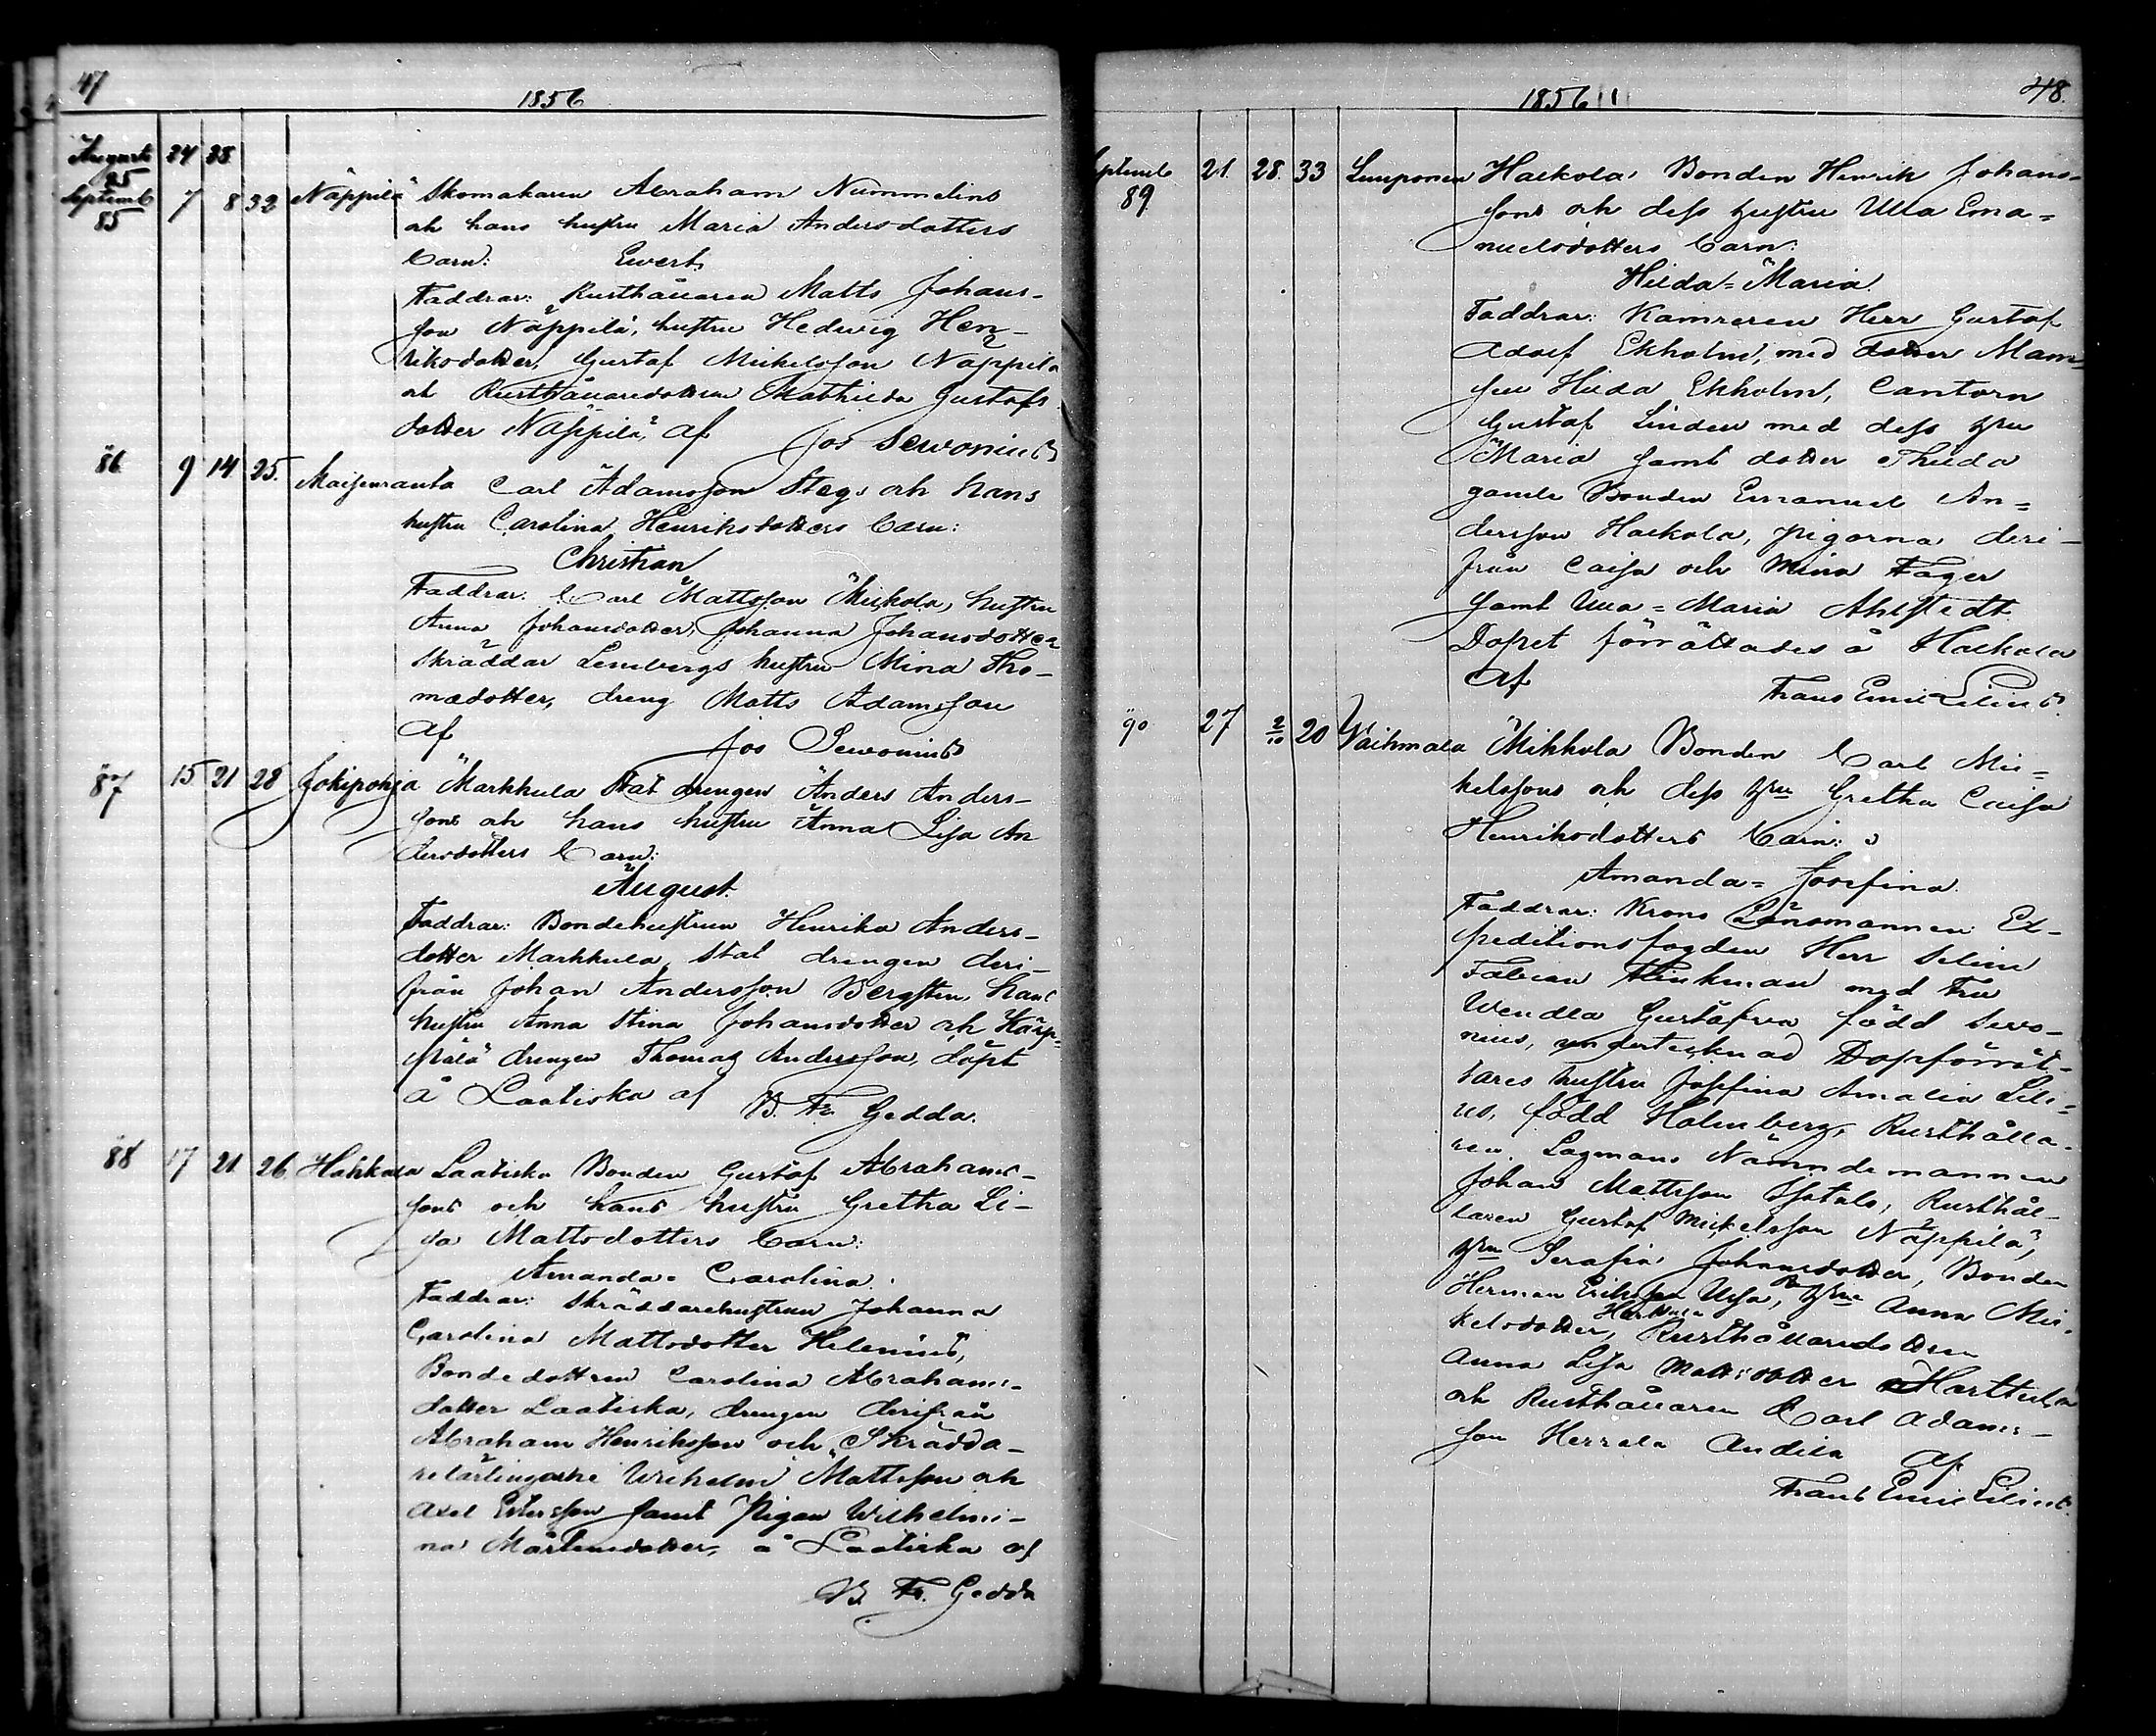 47
1856
Augusti 24 25
25
Septemb 7 8 32 Näppilä Skomakaren Abraham Nummelins
85
och hans hustru Maria Andersdotters
barn: Evert,
Faddrar: Rusthållaren Matts Johans-
son Näppilä, hustru Hedvig Hen-
riksdotter, Gustaf Mickelsson Näppilä
och Rusthållaredottren Mathilda Gustafs
dotter Näppilä, af Jos Sevonius
86 9 14 25. Maijanranta Carl Adamsson Stegs och hans
hustru Carolina Henriksdotters barn:
Christian
Faddrar. Carl Mattsson Mickola, hustru
Anna Johansdotter, Johanna Johansdotter
skräddar Lembergs hustru Mina Tho-
mædotter, dreng Matts Adamsson
af Jos Sevonius
87 15 21 28 Jokipohja Markkula Stat drengen Anders Anders-
sons och hans hustru Anna Lisa An
dersdotters barn:
August.
Faddrar: Bondehustrun Henrika Anders-
dotter Markkula, Stat drengen deri-
från Johan Andersson Bergsten, hans
hustru Anna Stina Johansdotter och
drengen Thomas Andersson, döpt
å Laatiska af B. Fr. Gedda.
88 17 21 26 Hahkala Laatiska Bonden Gustaf Abrahams-
sons och hans hustru Gretha Li-
sa Mattsdotters barn:
Amanda-Carolina.
Faddrar: Skräddarehustrun Johanna
Carolina Mattsdotter Helenius,
Bondedottren Carolina Abrahams-
dotter Laatiska, drengen derifrån
Abraham Henriksson och Skrädda-
relärlingarne Wilhelm Mattsson och
Axel Ersson samt Pigan Wilhelmi-
na Mårtensdotter, å Laatiska af
B. Fr. Gedda
1856
48.
Septemb 21. 28. 33 Lumponen Hackola Bonden Henrik Johans-
89
sons och dess hustru Ulla Ema=
nuelsdotters barn:
Hilda=Maria
Faddrar: Kamreren Herr Gustaf
Adolf Ekholm, med dotter Mam-
sell Hilda Ekholm, Cantorn
Gustaf Linden med dess hru
Maria samt dotter Thilda
gamle Bonden Emanuel An=
dersson Hackola, pigorna deri-
från Caisa och Mina Fager
samt Ulla=Maria Ahlstedt.
Dopet förrättades å Hackola
af Frans Emil Lilius.
90 27 2/10 20 Vaihmala Mikkola Bonden Carl Mic=
kelssons och dess hru Gretha Caisa
Henriksdotters barn:
Amanda=Josefina.
Faddrar: Krono Länsmannen Ex-
peditionsfogden Herr Selim
Fabian Flinkman med Fru
Wendla Gustafva född Sevo-
nius, undertecknad Dopförrät-
tares hustru Josefina Amalia Lili=
us, född Holmberg, Rusthålla-
ren Lagmans Nämndemannen
Johan Mattsson Isotalo, Rusthål-
laren Gustaf Mickelsson Näppilä,
hru Serafia Johansdotter, Bonden
Herman Eriksson Ursa, hru Anna Mic-
kelsdotter, Rusthållaredottren
Anna Lisa Mattsdotter Harttula
och Rusthållaren Carl Adams-
son Herrala Andila af
Frans Emil Lilius.